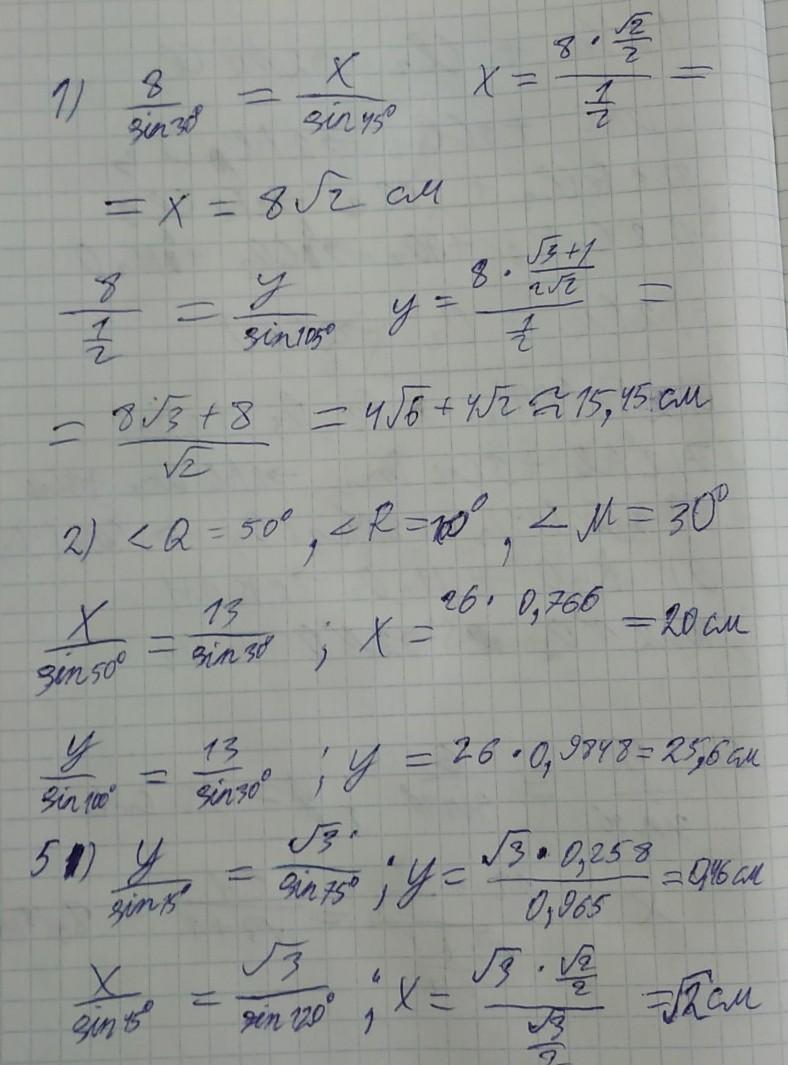 1) 8/sin30° = x/sin45° x = (8 · √2/2)/(1/2) =
= x = 8√2 см
8/(1/2) = y/sin105° y = (8 · (√3+1)/(2√2))/(1/2) =
= (8√3 + 8)/√2 = 4√6 + 4√2 ≈ 15,45 см
2) <Q = 50°, <R = 100°, <M = 30°
x/sin50° = 13/sin30° ; x = 26 · 0,766 = 20 см
y/sin100° = 13/sin30° ; y = 26 · 0,9848 = 25,6 см
51) y/sin15° = √3/sin75° ; y = (√3 · 0,258)/0,965 = 0,46 см
x/sin45° = √3/sin120° ; x = (√3 · √2/2)/(√3/2) = √2 см